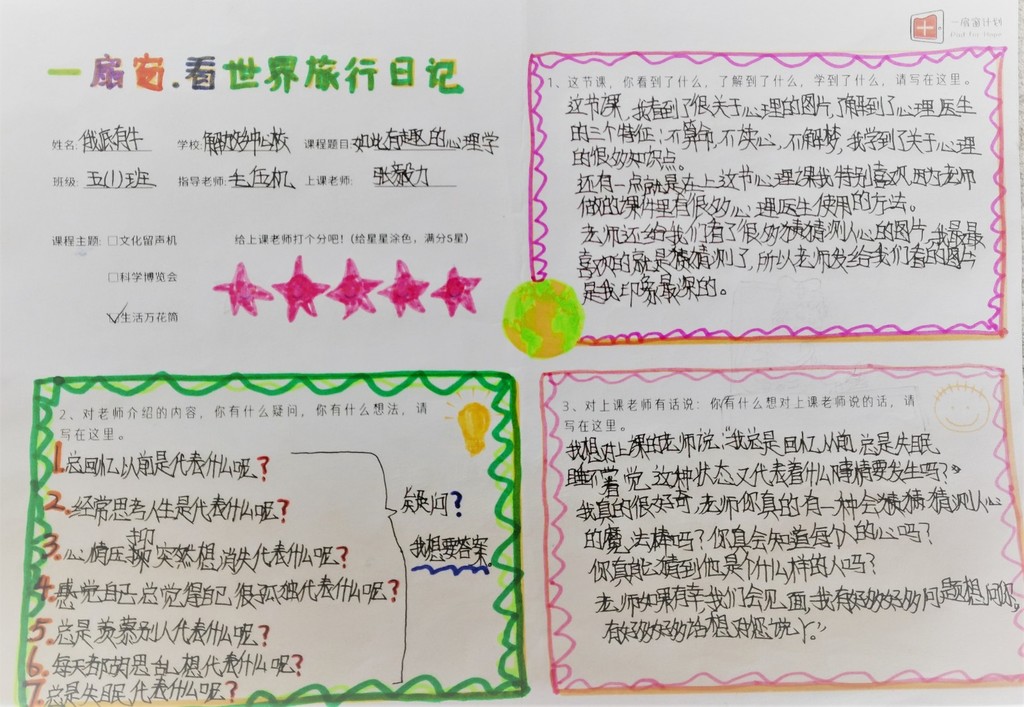 一扇窗计划
一扇窗.看世界旅行日记
姓名: 学校:解放钟心校 课程题目:如此有趣的心理学
班级:五(1)班 指导老师:毛伍机 上课老师:张毅力
课程主题:□文化留声机
□科学博览会
✓生活万花筒
给上课老师打个分吧!(给星星涂色,满分5星)
1、这节课,你看到了什么,了解到了什么,学到了什么,请写在这里。
这节课,我看到了很关于心理的图片,了解到了心理医生
的三个特征:不算命,不读心,不解梦,我学到了关于心理
的很多知识点。
还有一点就是在上这节心理课我特别喜欢,因为老师
做的课件里有很多心理医生使用的方法。
老师还给我们看了很多猜猜测人心的图片,我最最
喜欢的就是猜猜测了,所以老师发给我们看的图片
是我印象最深的。
2、对老师介绍的内容,你有什么疑问,你有什么想法,请
写在这里。
1.总回忆以前是代表什么呢?
2.经常思考人生是代表什么呢?
3.心情压抑突然想消失代表什么呢?
4.感觉自己总觉得自己很孤独代表什么呢?
5.总是羡慕别人代表什么呢?
6.每天都胡思乱想代表什么呢?
7.总是失眠代表什么呢?
疑问?
我想要答案
3、对上课老师有话说:你有什么想对上课老师说的话,请
写在这里。
我想对上课的老师说:“我总是回忆以前,总是失眠
睡不着觉,这种状态又代表着什么事情要发生吗?”
我真的很好奇,老师你真的有一种会猜猜猜测人心
的魔法棒吗?你真会知道每个人的心吗?
你真能猜到他是个什么样的人吗?
老师如果有幸我们会见面,我有好多好多问题想问你,
有好多好多话想对您说。”